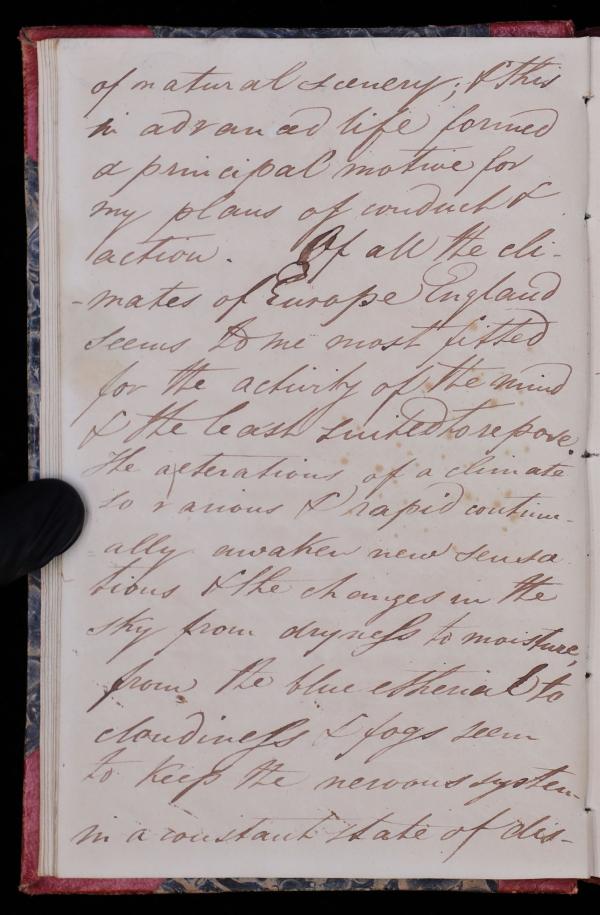 of natural scenery; & this
in advanced life formed
a principal motive for
my plans of conduct &
action. Of all the cli-
-mates of Europe England
seems to me most fitted
for the activity of the mind
& the least suited to repose.
The alterations of a climate
so various & rapid continu-
ally awaken new sensa
tions & the changes in the
sky from dryness to moisture,
from the blue etherial to
cloudiness & fogs seem
to keep the nervous system
in a constant state of dis-